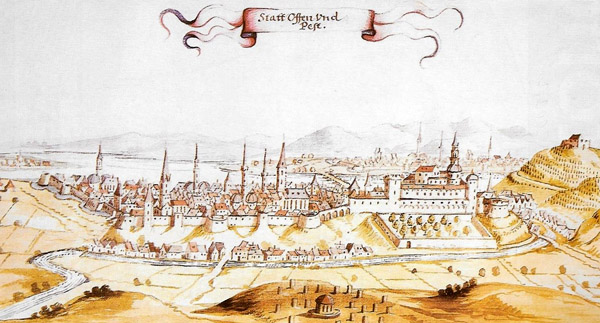 Statt Offen Vnd
Pest.